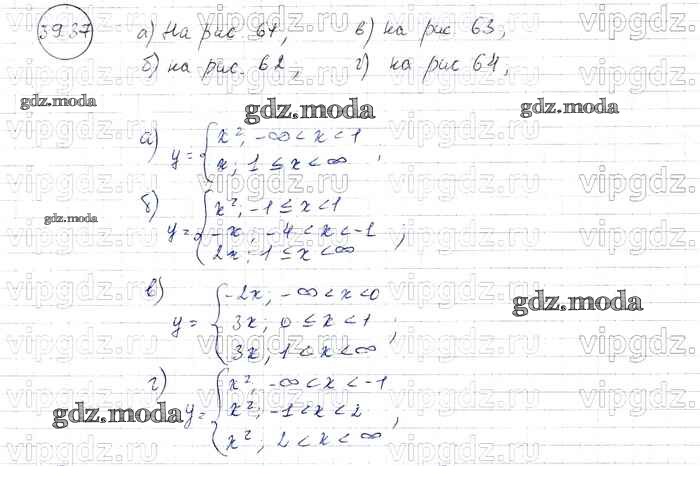 39.37
а) На рис 61, в) на рис 63,
б) на рис. 62, г) на рис 64,
gdz.moda
gdz.moda
gdz.moda
а) y = { x², -∞ < x < 1
x, 1 ≤ x < ∞ ;
gdz.moda
б) y = { x², -1 ≤ x < 1
-x, -4 < x < -1
2x, 1 ≤ x < ∞ ;
в) y = { -2x, -∞ < x < 0
3x, 0 ≤ x < 1
3x, 1 < x < ∞ ;
gdz.moda
г) y = { x², -∞ < x < -1
x², -1 < x < 2
x², 2 < x < ∞ ;
gdz.moda
vipgdz.ru